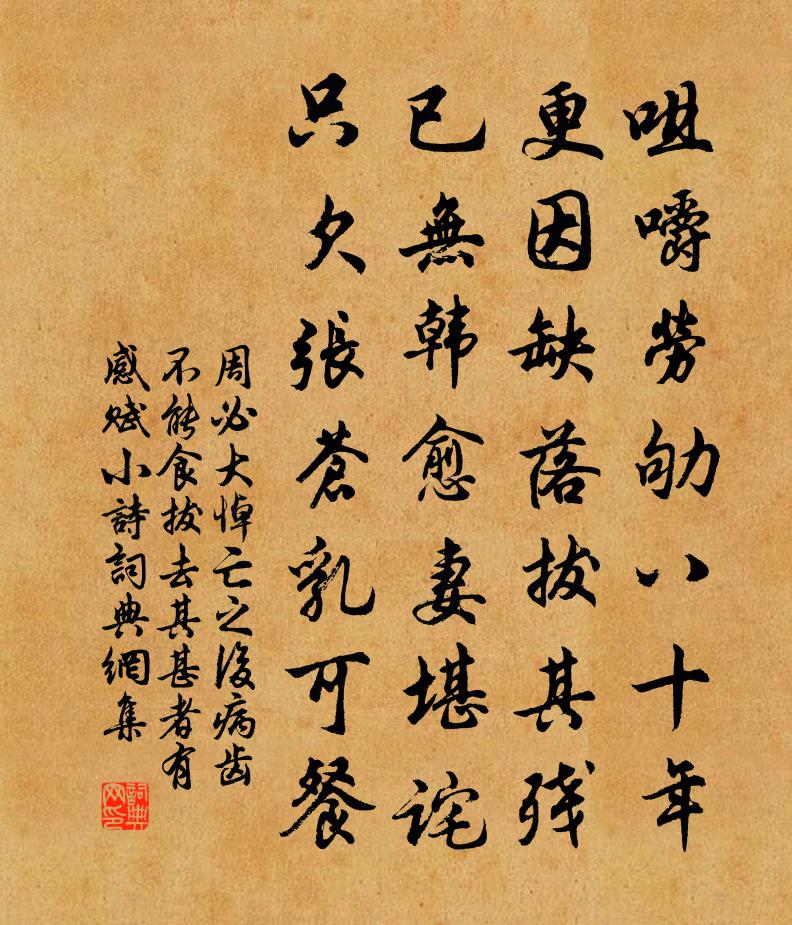 咀嚼勞劬八十年
更因缺落拔其残
已無韩愈妻堪詫
只欠張蒼乳可餐
周必大悼亡之後病齿
不能食拔去其甚者有
感赋小詩詞典網集
詞典网印